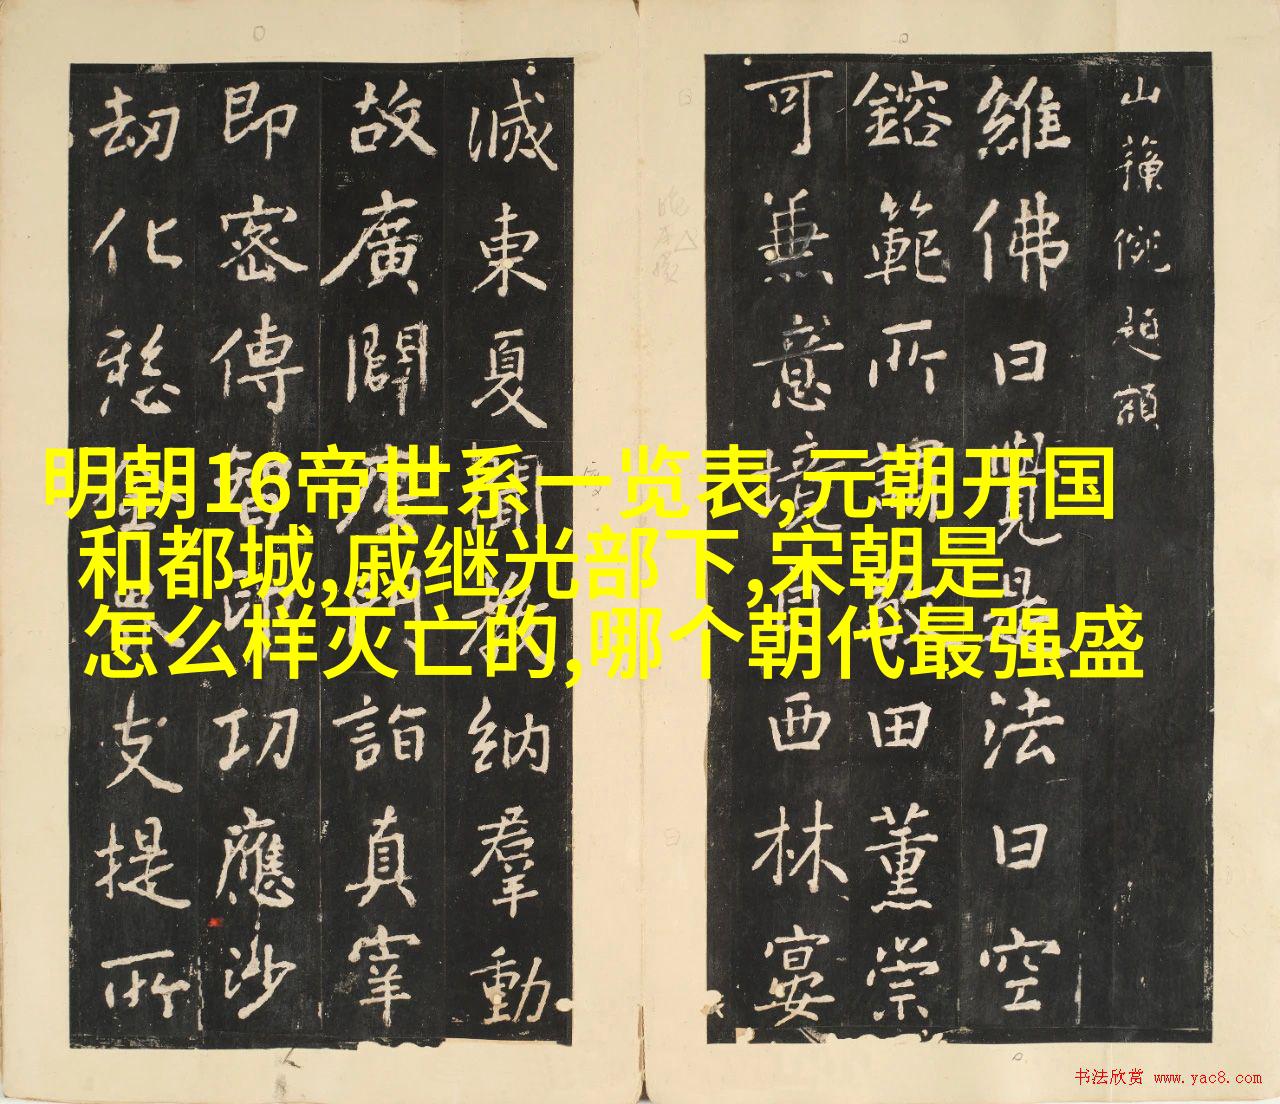 明朝16帝世系一览表,元朝开国
和都城,戚继光部下,宋朝是
怎么样灭亡的,哪个朝代最强盛
山
額
維佛曰覽是法曰空
鎔範所田薰崇
可兼意境西林宴
減東夏聞教納羣動
故廣闢詣真宰
即密傳智印功應沙
劫化愁支提所
书法欣赏 www.yac8.com